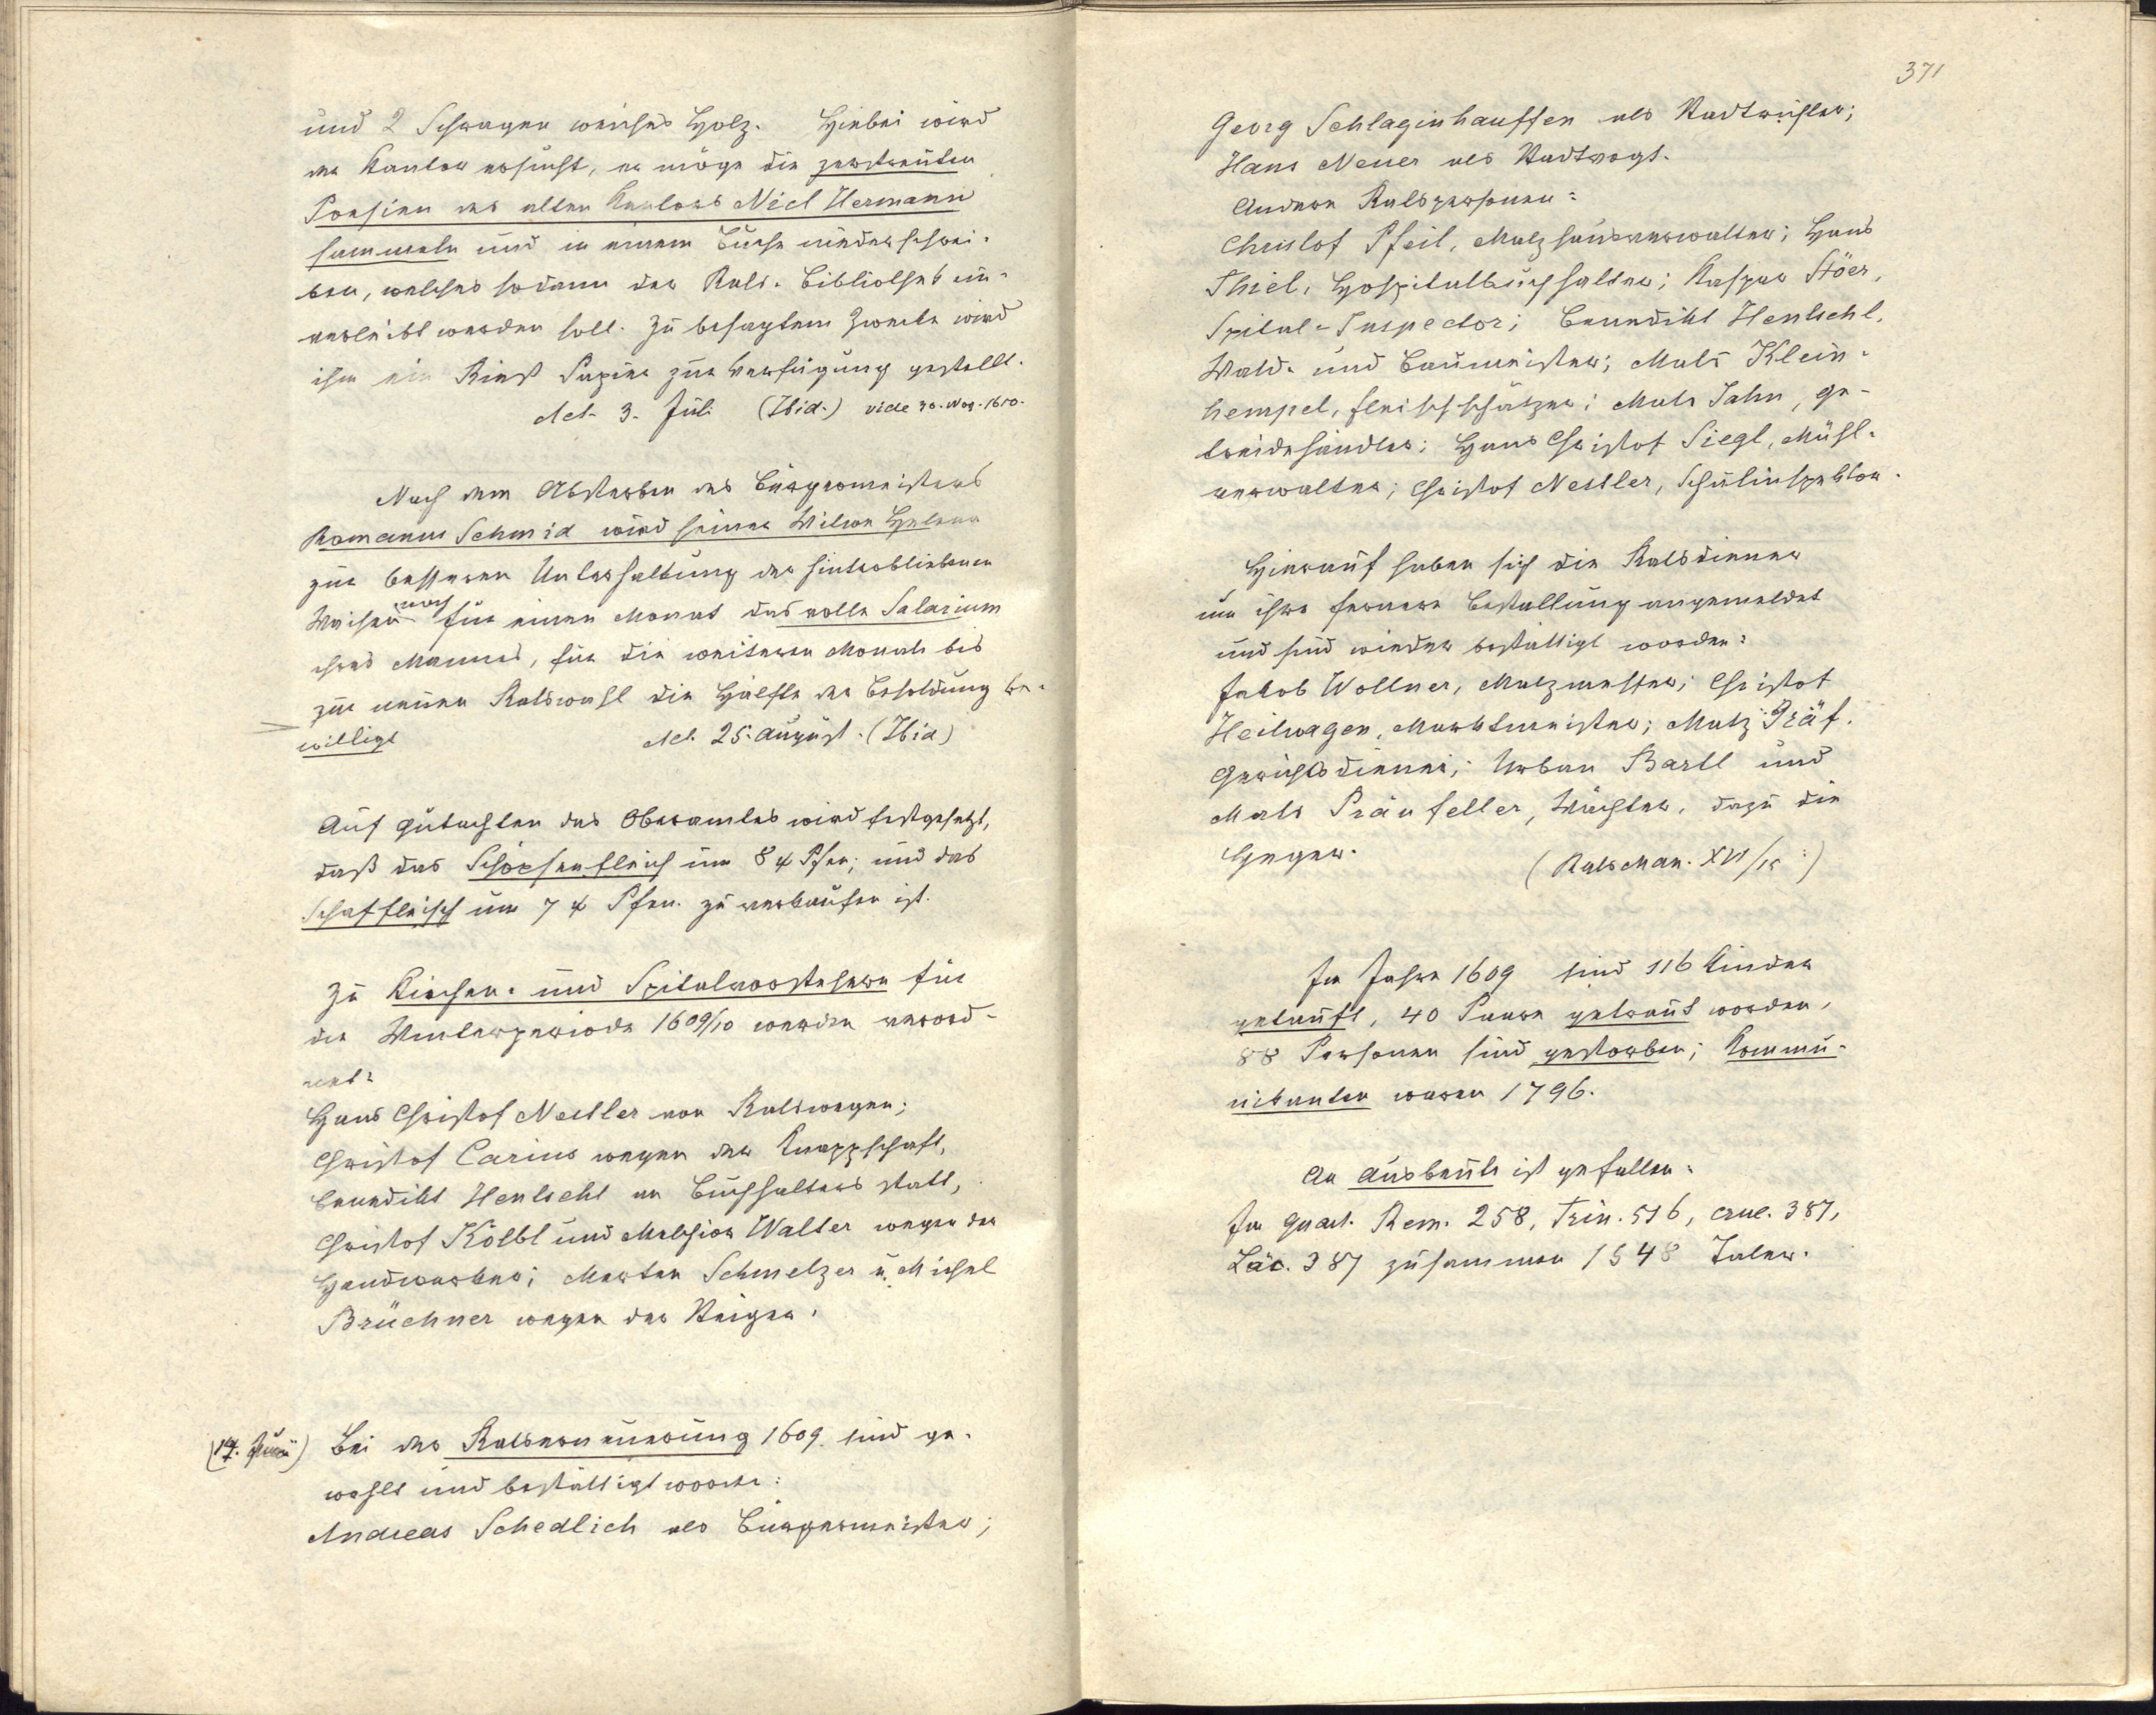 und 2 Schragen weiches Holz. Hiebei wird
der Kantor ersucht, er möge die zerstreuten
Poesien des alten Kantors Nicl Hermann
sammeln und in einem Buche niederschrei-
ben, welches sodann der Rats-Bibliothek ein-
verleibt werden soll. Zu besagtem Zwecke wird
ihm ein Rieß Papier zur Verfügung gestellt.
Act. 3. Juli (Ibid.) vide 30. Nov. 1610.
Nach dem Absterben des Bürgermeisters
Romanus Schmid wird seiner Witwe Helena
zur besseren Unterhaltung der hinterbliebenen
Waisen noch für einen Monat das volle Salarium
ihres Mannes, für die weiteren Monate bis
zur neuen Ratswahl die Hälfte der Besoldung be-
willigt Act. 25. August. (Ibid)
Auf Gutachten des Oberamtes wird festgesetzt,
daß das Schöpsenfleich um 8 ₰ Pfen; und das
Schaffleisch um 7 ₰ Pfen. zu verkaufen ist.
Zu Kirchen- und Spitalvorstehern für
die Winterperiode 1609/10 werden verord-
net:
Hans Christof Nestler von Ratswegen;
Christof Carius wegen der Knappschaft,
Benedikt Hentschl an Buchhalters statt,
Christof Kölbl und Melchior Walter wegen der
Handwerker; Merten Schmelzer u. Michel
Brüchner wegen der Steiger.
(17. Juni) Bei der Ratserneuerung 1609 sind ge-
wählt und bestättigt worden:
Andreas Schedlich als Bürgermeister;
371
Georg Schlaginhauffen als Stadtrichter;
Hans Neuer als Stadtvogt.
Andere Ratspersonen:
Christof Pfeil, Malzhausverwalter; Hans
Thiel, Hospitalbuchhalter; Kaspar Stöer,
Spital-Inspector; Benedikt Hentschl,
Wald- und Baumeister; Mats Klein-
hempel, Fleischschätzer; Mats Jahn, Ge-
treidehändler; Hans Christof Siegl, Mühl-
verwalter; Christof Nestler, Schulinspektor.
Hierauf haben sich die Ratsdiener
um ihre fernere Bestallung angemeldet
und sind wieder bestättigt worden:
Jakob Wollner, Malzmesser; Christof
Heilwagen, Marktmeister; Matz Gräf,
Gerichtsdiener; Urban Bartl und
Mats Präufeller, Wächter, dazu die
Heger. (Rats Man. XVI/15:)
Im Jahre 1609 sind 116 Kinder
getauft, 40 Paare getraut worden,
88 Personen sind gestorben; Kommu-
nikanten waren 1796.
An Ausbeute ist gefallen:
Im Quart. Rem. 258, Trin. 516, Cruc. 387,
Luc. 387 zusammen 1548 Taler.